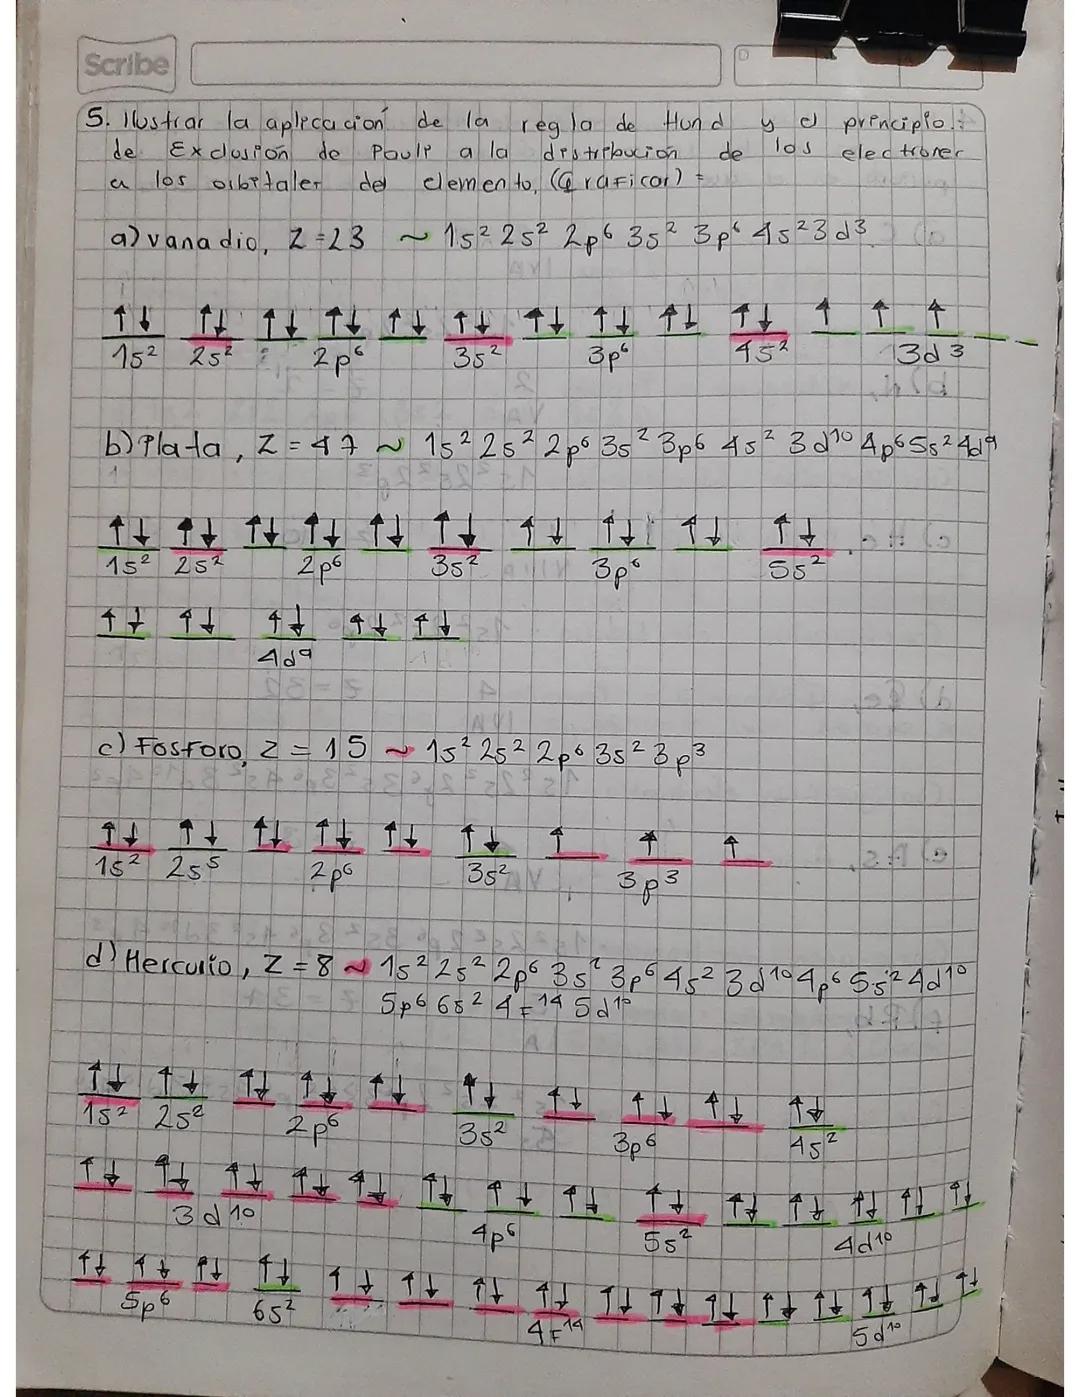 Scribe
5. Ilustrar la aplicacación de la regla de Hund y el principio
de Exclusión de Pauli a la distribución de los electrones
a los orbitales del elemento, (Graficar) =
a) vanadio, Z=23 ~ 1s² 2s² 2p⁶ 3s² 3p⁶ 4s² 3d³
↑↓ ↑↓ ↑↓ ↑↓ ↑↓ ↑↓ ↑↓ ↑↓ ↑↓ ↑↓ ↑ ↑ ↑
1s² 2s² 2p⁶ 3s² 3p⁶ 4s² 3d³
b) Plata, Z = 47 ~ 1s² 2s² 2p⁶ 3s² 3p⁶ 4s² 3d¹⁰ 4p⁶ 5s² 4d⁹
↑↓ ↑↓ ↑↓ ↑↓ ↑↓ ↑↓ ↑↓ ↑↓ ↑↓ ↑↓
1s² 2s² 2p⁶ 3s² 3p⁶ 5s²
↑↓ ↑↓ ↑↓ ↑↓ ↑↓
4d⁹
c) Fosforo, Z = 15 ~ 1s² 2s² 2p⁶ 3s² 3p³
↑↓ ↑↓ ↑↓ ↑↓ ↑↓ ↑↓ ↑ ↑ ↑
1s² 2s⁵ 2p⁶ 3s² 3p³
d) Mercurio, Z = 8 ~ 1s² 2s² 2p⁶ 3s² 3p⁶ 4s² 3d¹⁰ 4p⁶ 5s² 4d¹⁰
5p⁶ 6s² 4F¹⁴ 5d¹⁰
↑↓ ↑↓ ↑↓ ↑↓ ↑↓ ↑↓ ↑↓ ↑↓ ↑↓ ↑↓
1s² 2s² 2p⁶ 3s² 3p⁶ 4s²
↑↓ ↑↓ ↑↓ ↑↓ ↑↓ ↑↓ ↑↓ ↑↓ ↑↓ ↑↓ ↑↓ ↑↓ ↑↓ ↑↓
3d¹⁰ 4p⁶ 5s² 4d¹⁰
↑↓ ↑↓ ↑↓ ↑↓ ↑↓ ↑↓ ↑↓ ↑↓ ↑↓ ↑↓ ↑↓ ↑↓ ↑↓ ↑↓ ↑↓ ↑↓
5p⁶ 6s² 4F¹⁴ 5d¹⁰